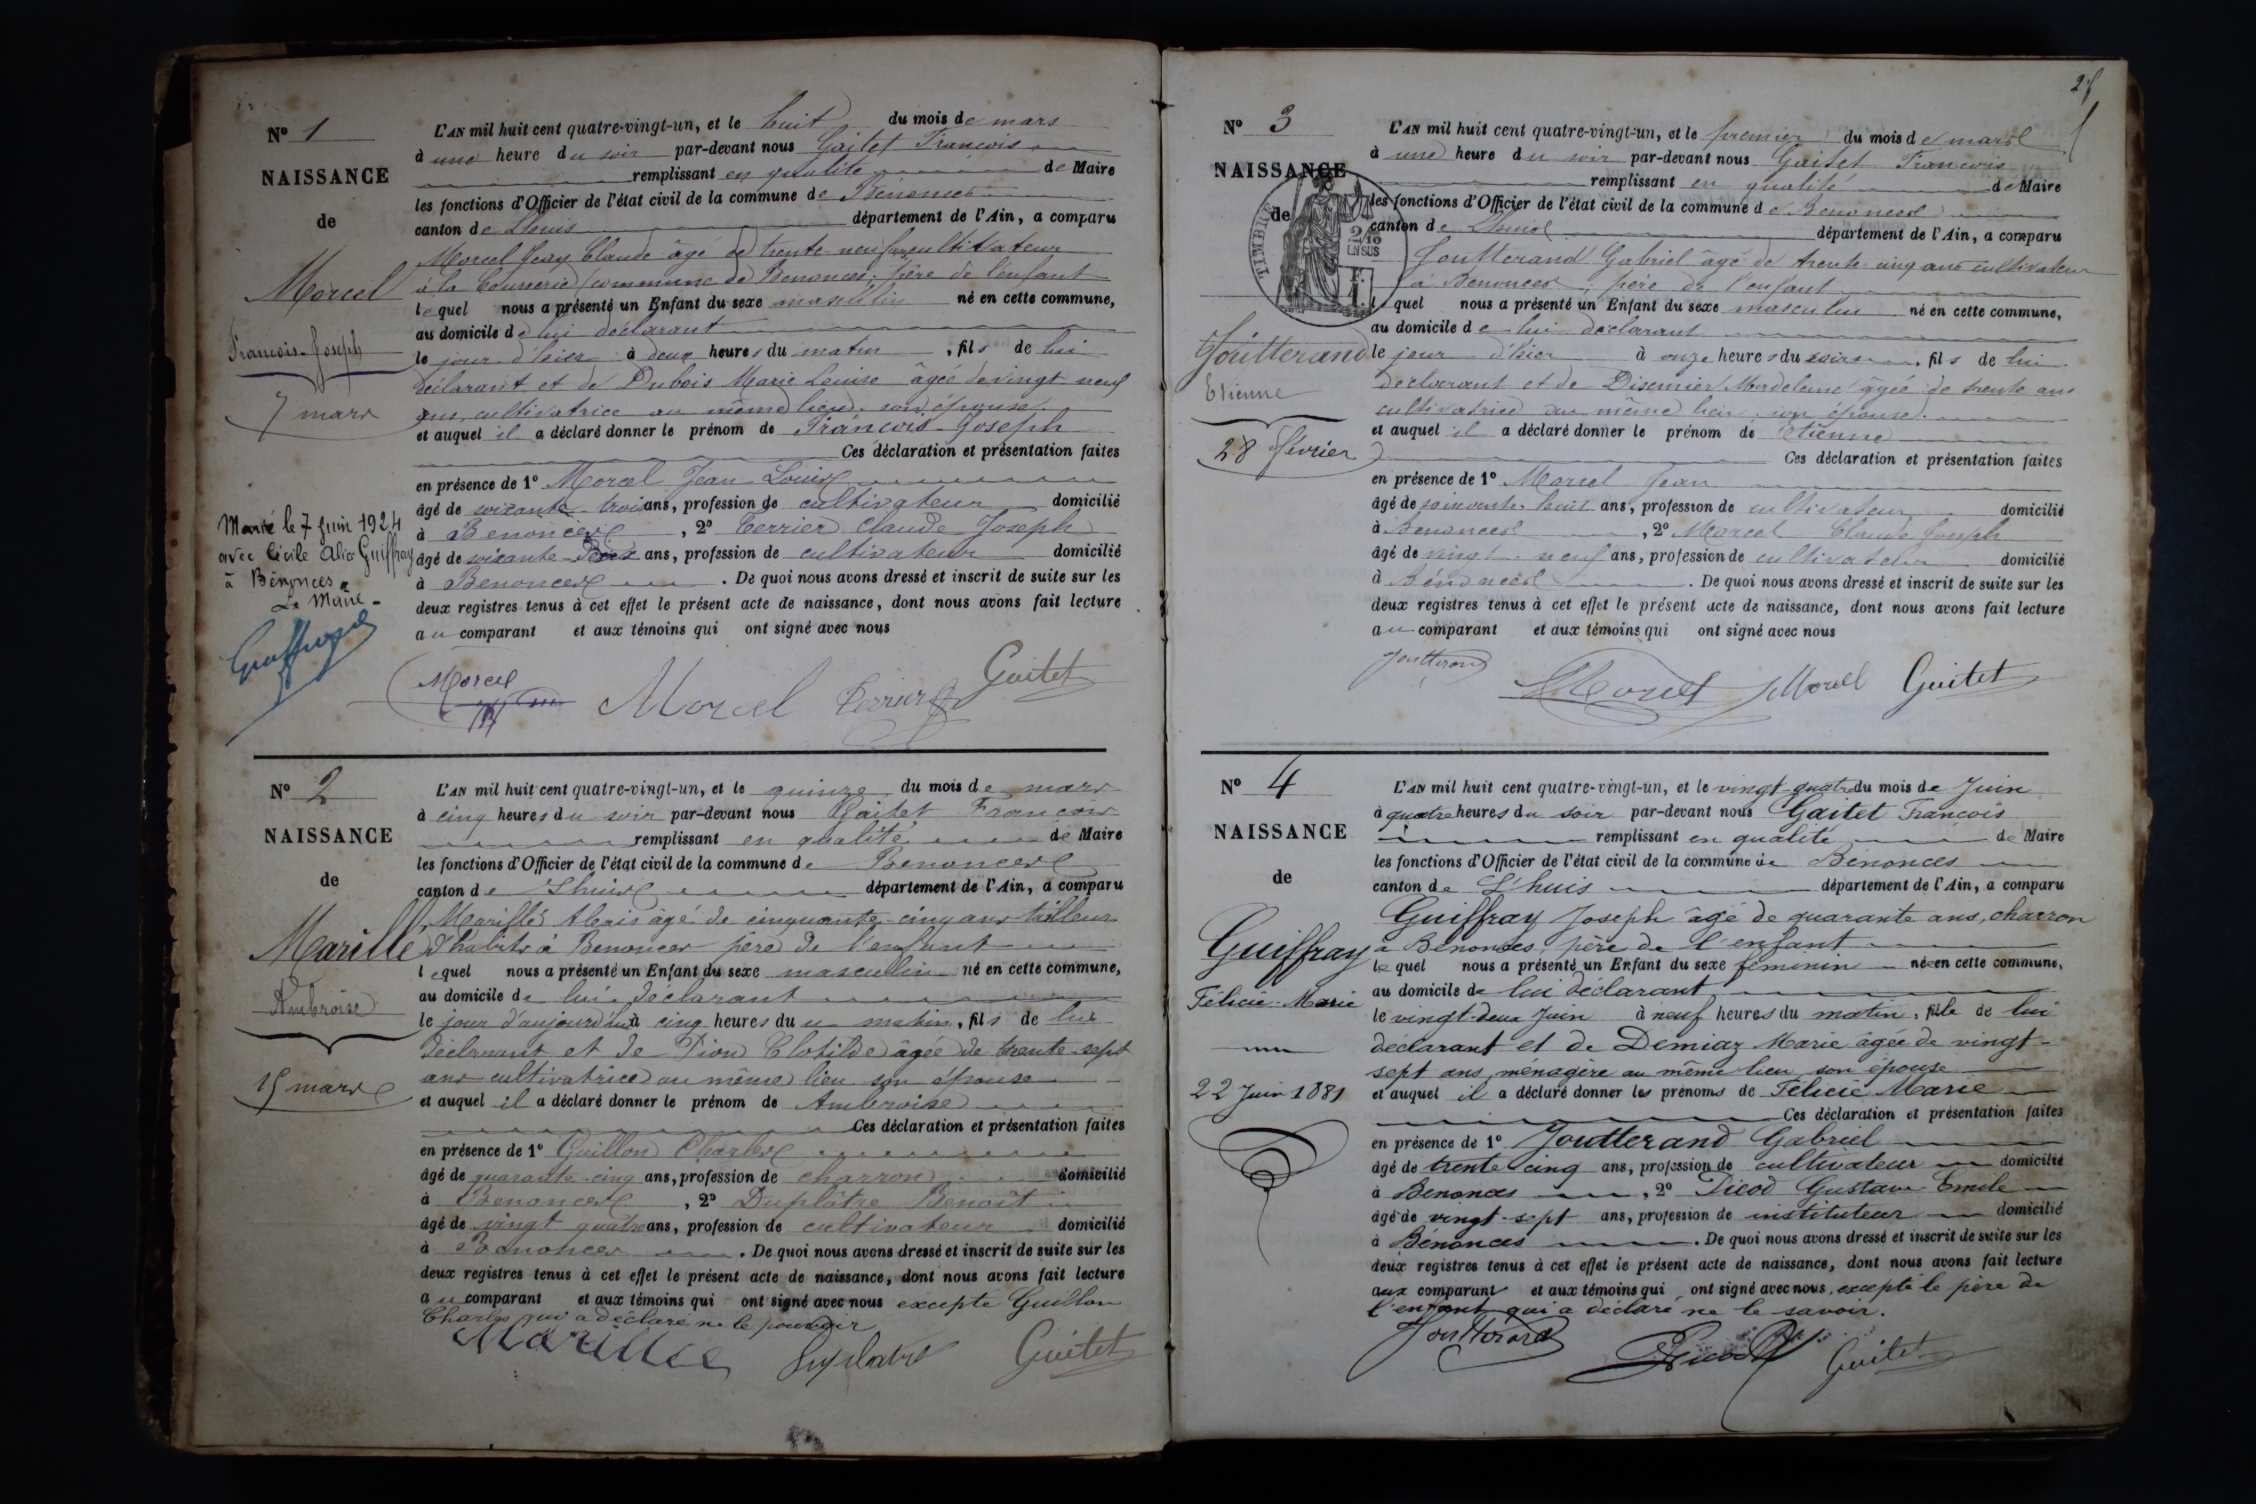 N° 1
NAISSANCE
de
Morcel
François-Joseph
7 mars
Marié le 7 Juin 1924
avec Guiffray
à Bénonces
Le Maire
L'AN mil huit cent quatre-vingt-un, et le huit du mois de mars
à une heure du soir par-devant nous Gaitet François
remplissant en qualité de Maire
les fonctions d'Officier de l'état civil de la commune de Bénonces
canton de Lhuis département de l'Ain, a comparu
Morcel Jean Claude âgé de trente neuf ans cultivateur
à la commune de Benonces, père de l'enfant
lequel nous a présenté un Enfant du sexe masculin né en cette commune,
au domicile de lui déclarant
le jour d'hier à deux heures du matin, fils de lui
déclarant et de Dubois Marie Louise âgée de vingt neuf
ans, cultivatrice au même lieu, son épouse.
et auquel il a déclaré donner le prénom de François-Joseph
Ces déclaration et présentation faites
en présence de 1° Morcel Jean Louis
âgé de soixante trois ans, profession de cultivateur domicilié
à Benonces, 2° Terrier Claude Joseph
âgé de soixante ans, profession de cultivateur domicilié
à Benonces. De quoi nous avons dressé et inscrit de suite sur les
deux registres tenus à cet effet le présent acte de naissance, dont nous avons fait lecture
au comparant et aux témoins qui ont signé avec nous
Morcel Morcel Terrier Gaitet
N° 2
NAISSANCE
de
Marillé
Ambroise
15 mars
L'AN mil huit cent quatre-vingt-un, et le quinze du mois de mars
à cinq heures du soir par-devant nous Gaitet François
remplissant en qualité de Maire
les fonctions d'Officier de l'état civil de la commune de Benonces
canton de Lhuis département de l'Ain, a comparu
Marillé Alexis âgé de cinquante-cinq ans tailleur
d'habits à Benonces père de l'enfant
lequel nous a présenté un Enfant du sexe masculin né en cette commune,
au domicile de lui déclarant
le jour d'aujourd'hui à cinq heures du matin, fils de lui
déclarant et de Pion Clotilde âgée de trente-sept
ans cultivatrice au même lieu son épouse
et auquel il a déclaré donner le prénom de Ambroise
Ces déclaration et présentation faites
en présence de 1° Guillon Charles
âgé de quarante-cinq ans, profession de charron domicilié
à Benonces, 2° Duplâtre Benoît
âgé de vingt quatre ans, profession de cultivateur domicilié
à Benonces. De quoi nous avons dressé et inscrit de suite sur les
deux registres tenus à cet effet le présent acte de naissance, dont nous avons fait lecture
au comparant et aux témoins qui ont signé avec nous excepté Guillon
Charles qui a déclaré ne le pouvoir
Marillé Duplatre Gaitet
N° 3
NAISSANCE
de
Joutterand
Etienne
28 février
TIMBRE
2/10
EN SUS
L'AN mil huit cent quatre-vingt-un, et le premier du mois de mars
à une heure du soir par-devant nous Gaitet François
remplissant en qualité de Maire
les fonctions d'Officier de l'état civil de la commune de Benonces
canton de Lhuis département de l'Ain, a comparu
Joutterand Gabriel âgé de trente cinq ans cultivateur
à Benonces, père de l'enfant
lequel nous a présenté un Enfant du sexe masculin né en cette commune,
au domicile de lui déclarant
le jour d'hier à onze heures du soir, fils de lui
déclarant et de Madeleine âgée de trente ans
cultivatrice au même lieu, son épouse.
et auquel il a déclaré donner le prénom de Etienne
Ces déclaration et présentation faites
en présence de 1° Morcel Jean
âgé de soixante-huit ans, profession de cultivateur domicilié
à Benonces, 2° Morcel Claude Joseph
âgé de vingt-neuf ans, profession de cultivateur domicilié
à Bénonces. De quoi nous avons dressé et inscrit de suite sur les
deux registres tenus à cet effet le présent acte de naissance, dont nous avons fait lecture
au comparant et aux témoins qui ont signé avec nous
Joutterand Morcel Morcel Gaitet
N° 4
NAISSANCE
de
Guiffray
Félicie-Marie
22 Juin 1881
L'AN mil huit cent quatre-vingt-un, et le vingt-quatre du mois de Juin
à quatre heures du soir par-devant nous Gaitet François
remplissant en qualité de Maire
les fonctions d'Officier de l'état civil de la commune de Bénonces
canton de L'huis département de l'Ain, a comparu
Guiffray Joseph âgé de quarante ans, charron
à Bénonces, père de l'enfant
lequel nous a présenté un Enfant du sexe féminin née en cette commune,
au domicile de lui déclarant
le vingt-deux Juin à neuf heures du matin, fille de lui
déclarant et de Demiaz Marie âgée de vingt-
sept ans ménagère au même lieu son épouse
et auquel il a déclaré donner les prénoms de Félicie Marie
Ces déclaration et présentation faites
en présence de 1° Joutterand Gabriel
âgé de trente cinq ans, profession de cultivateur domicilié
à Bénonces, 2° Picod Gustave Emile
âgé de vingt-sept ans, profession de instituteur domicilié
à Bénonces. De quoi nous avons dressé et inscrit de suite sur les
deux registres tenus à cet effet le présent acte de naissance, dont nous avons fait lecture
aux comparant et aux témoins qui ont signé avec nous, excepté le père de
l'enfant qui a déclaré ne le savoir.
Joutterand Picod Gaitet